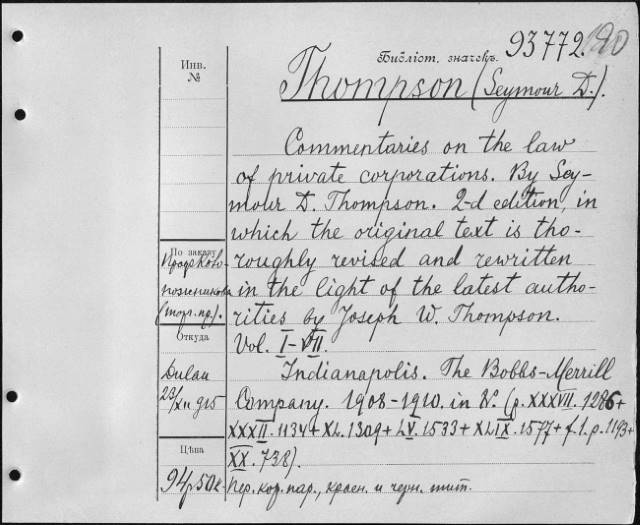 Библіот. значекъ 93772. 120
Инв.
№
Thompson (Seymour D.).
Commentaries on the law
of private corporations. By Sey-
mour D. Thompson. 2-d edition, in
which the original text is tho-
roughly revised and rewritten
in the light of the latest autho-
rities by Joseph W. Thompson.
Vol. I-VII.
Indianapolis. The Bobbs-Merrill
Company. 1908-1910. in 8º. (p. XXXVII. 1286+
XXXII. 1134+XL. 1309+LV. 1533+XLIX. 1577+f.l.p. 1193+
XX. 738).
Пер. кор. пар., красн. и черн. тит.
По заказу
Проф. Ково-
(торг. пр.).
Откуда
Dulau
23/XII 915
Цѣна
94 р. 50 к.